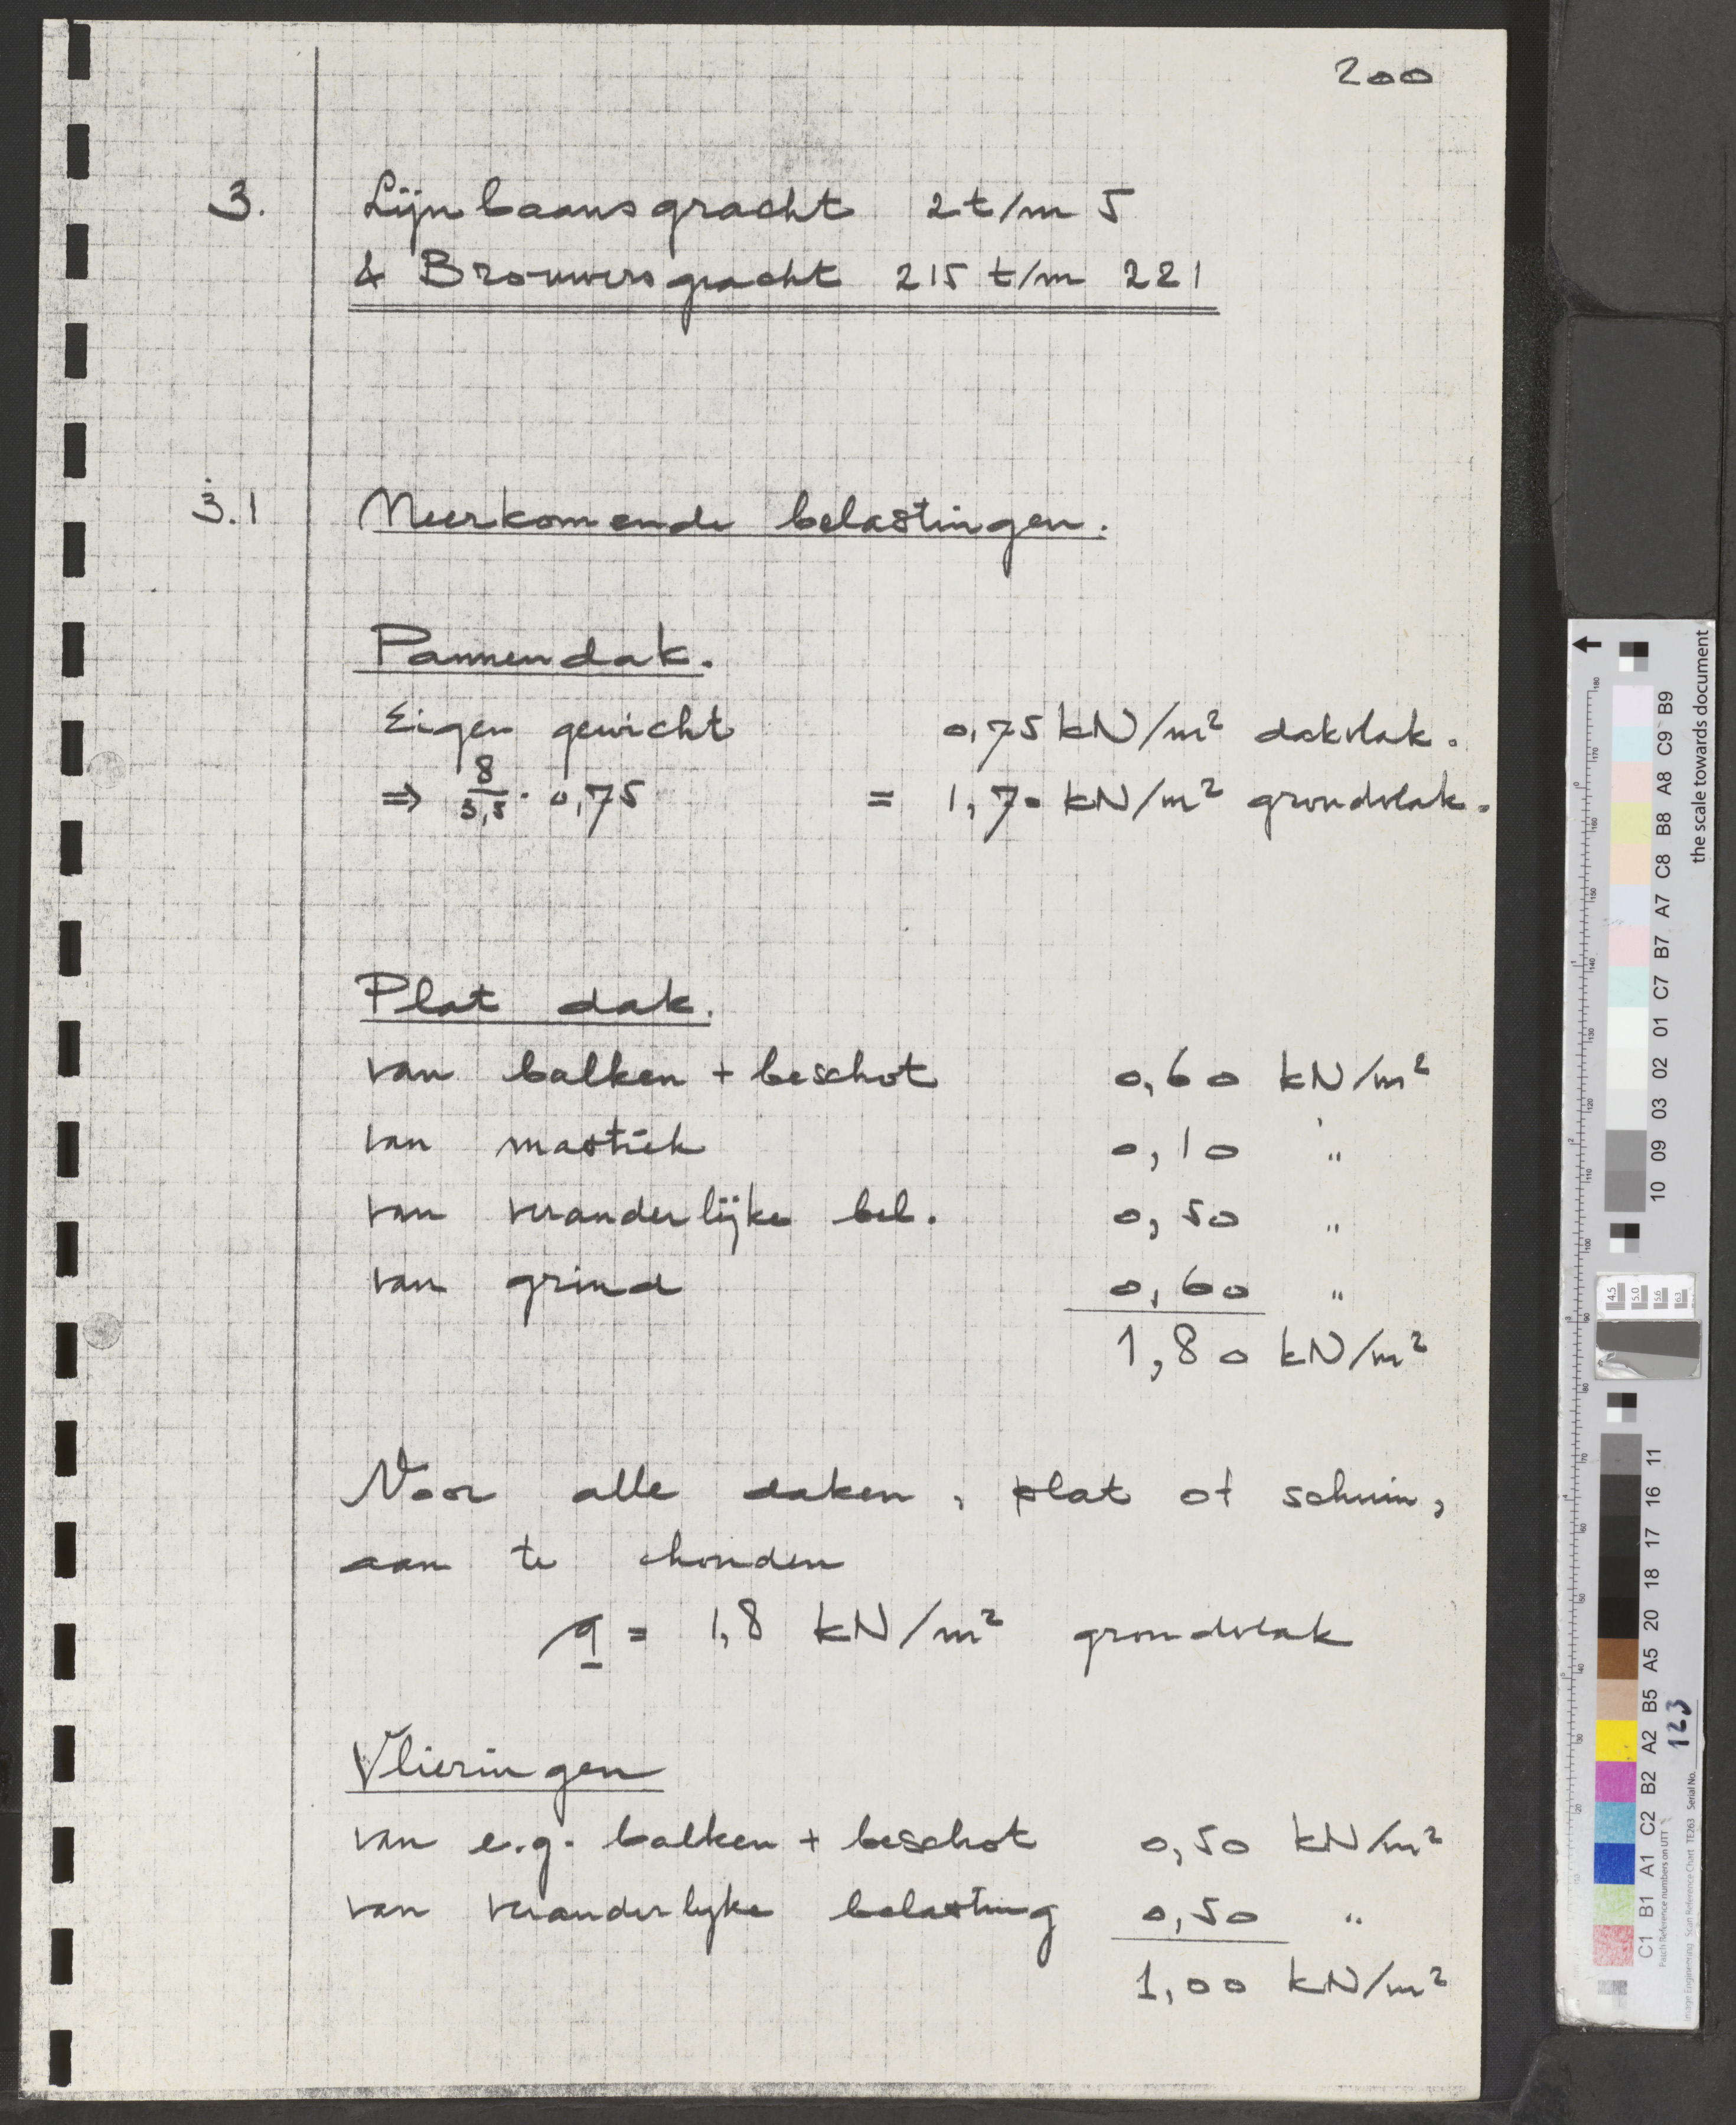 200
3. Lijnbaansgracht 2 t/m 5
& Brouwersgracht 215 t/m 221
3.1 Neerkomende belastingen.
Pannendak.
Eigen gewicht 0,75 kN/m² dakvlak.
⇒ 8/3,5 · 0,75 = 1,70 kN/m² grondvlak.
Plat dak.
van balken + beschot 0,60 kN/m²
van mastiek 0,10 "
van veranderlijke bel. 0,50 "
van grind 0,60 "
1,80 kN/m²
Voor alle daken, plat of schuin,
aan te houden
q = 1,8 kN/m² grondvlak
Vlieringen
van e.g. balken + beschot 0,50 kN/m²
van veranderlyke belasting 0,50 "
1,00 kN/m²
the scale towards document
C1 B1 A1 C2 B2 A2 B5 A5 20 18 17 16 11
10 09 03 02 01 C7 B7 A7 C8 B8 A8 C9 B9
Patch Reference numbers on UTT
Image Engineering Scan Reference Chart TE263 Serial No. 123